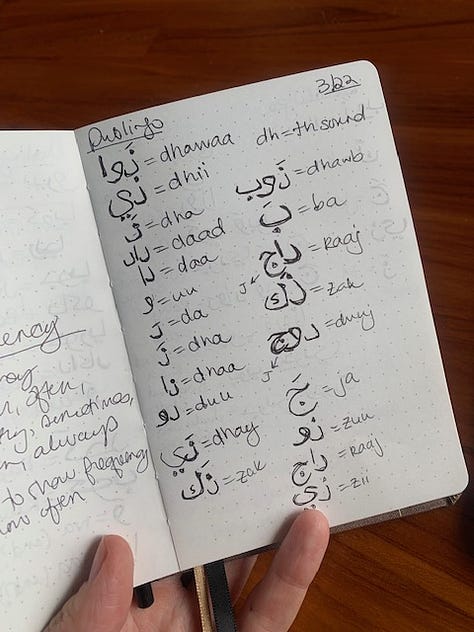 often,
sometimes,
always
to show frequency
often
3/22
Duolingo
ذَوا = dhawaa
ذي = dhii
ذَ = dha
داد = daad
دا = daa
و = uu
دَ = da
ذَ = dha
ذا = dhaa
دو = duu
ذَي = dhay
زَك = zak
dh = th sound
ذَوب = dhawb
بَ = ba
راج = raaj
J
زَك = zak
دوج = duuj
J
جَ = ja
زو = zuu
راج = raaj
زي = zii